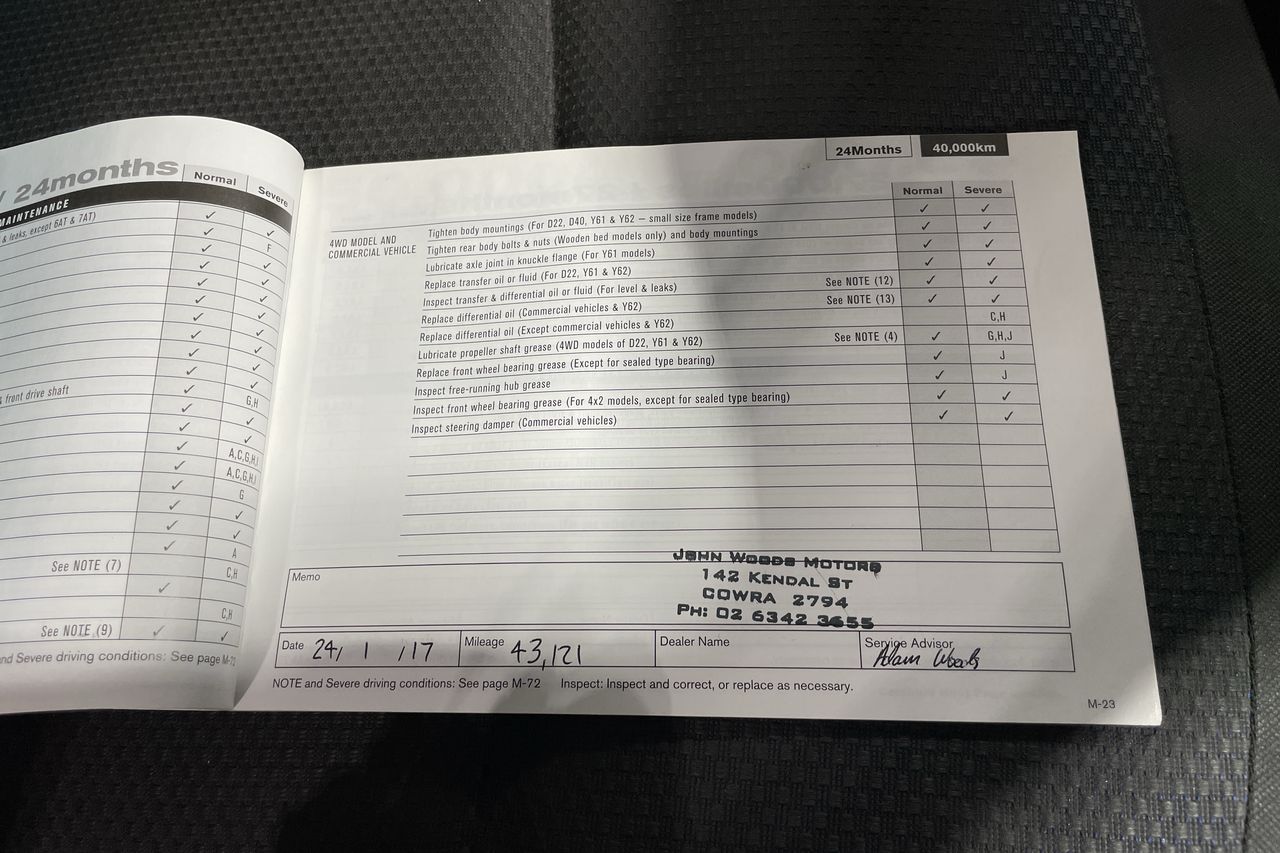 / 24months
Normal
Severe
MAINTENANCE
& leaks, except 6AT & 7AT)
✓ ✓
✓ F
✓ ✓
✓ ✓
✓ ✓
✓ ✓
✓ ✓
✓ ✓
✓ ✓
✓ ✓
& front drive shaft
✓ G,H
✓ ✓
✓ ✓
✓ A,C,G,H,I
✓ A,C,G,H,I
✓ G
✓ ✓
✓ ✓
A
See NOTE (7)
C,H
✓
C,H
See NOTE (9) ✓ ✓
and Severe driving conditions: See page M-72
24Months 40,000km
Normal Severe
4WD MODEL AND
COMMERCIAL VEHICLE
Tighten body mountings (For D22, D40, Y61 & Y62 – small size frame models) ✓ ✓
Tighten rear body bolts & nuts (Wooden bed models only) and body mountings ✓ ✓
Lubricate axle joint in knuckle flange (For Y61 models) ✓ ✓
Replace transfer oil or fluid (For D22, Y61 & Y62) ✓ ✓
Inspect transfer & differential oil or fluid (For level & leaks) See NOTE (12) ✓ ✓
Replace differential oil (Commercial vehicles & Y62) See NOTE (13) ✓ ✓
Replace differential oil (Except commercial vehicles & Y62) C,H
Lubricate propeller shaft grease (4WD models of D22, Y61 & Y62) See NOTE (4) ✓ G,H,J
Replace front wheel bearing grease (Except for sealed type bearing) ✓ J
Inspect free-running hub grease ✓ J
Inspect front wheel bearing grease (For 4x2 models, except for sealed type bearing) ✓ ✓
Inspect steering damper (Commercial vehicles) ✓ ✓
Memo
JOHN WOODS MOTORS
142 KENDAL ST
COWRA 2794
PH: 02 6342 3655
Date 24/ 1 /17
Mileage 43,121
Dealer Name
Service Advisor
Adam Woods
NOTE and Severe driving conditions: See page M-72 Inspect: Inspect and correct, or replace as necessary.
M-23